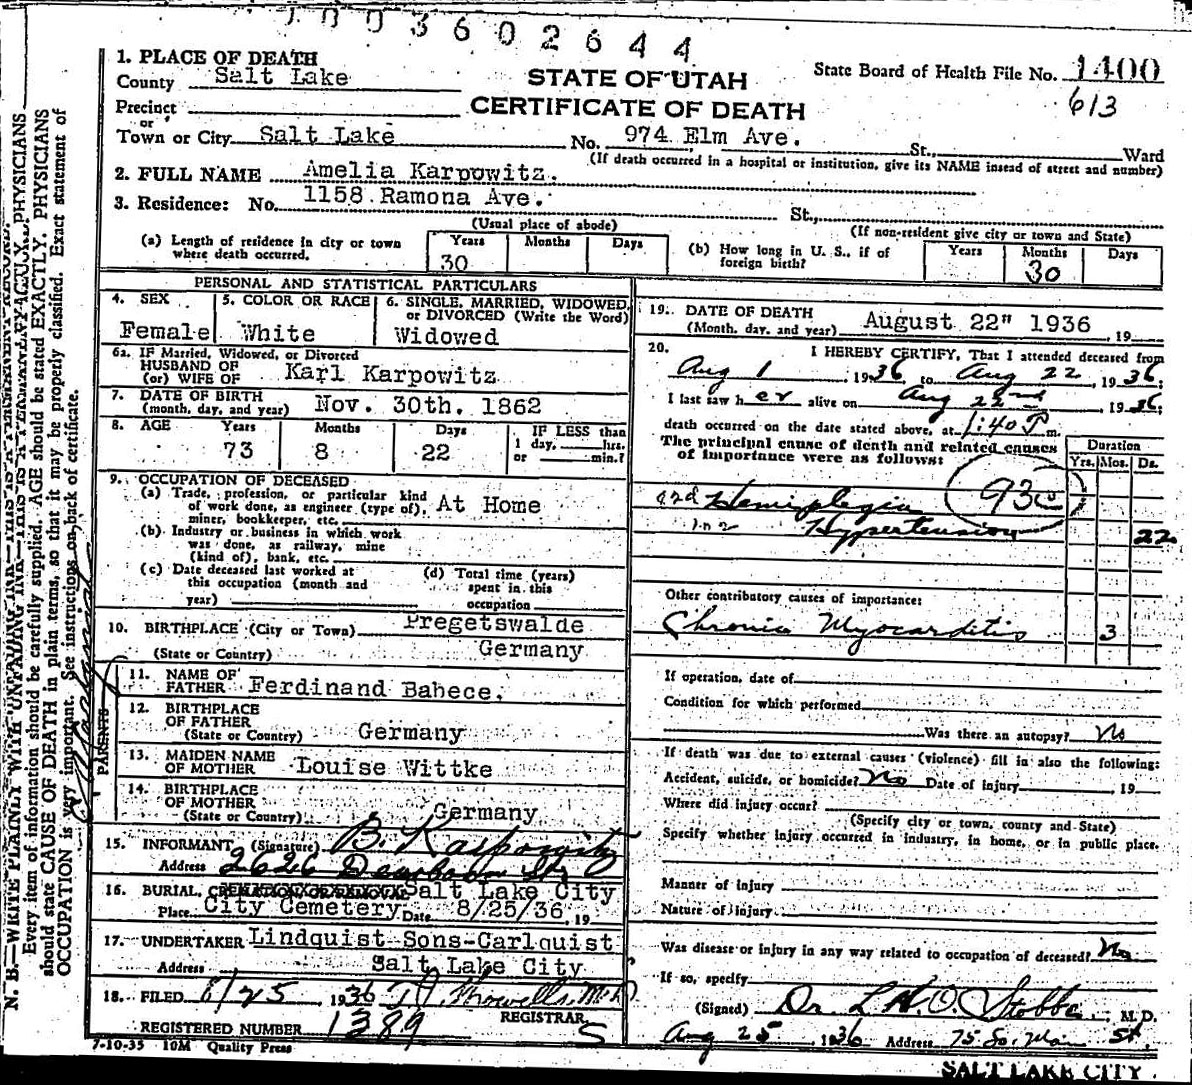 1003602644
1. PLACE OF DEATH
County Salt Lake
STATE OF UTAH
State Board of Health File No. 1400
Precinct
or
CERTIFICATE OF DEATH
613
Town or City Salt Lake No. 974 Elm Ave. St., Ward
(If death occurred in a hospital or institution, give its NAME insead of street and number)
2. FULL NAME Amelia Karpowitz.
3. Residence: No. 1158 Ramona Ave. St.,
(Usual place of abode)
(If non-resident give city or town and State)
(a) Length of residence in city or town
where death occurred.
Years Months Days
30
(b) How long in U. S., if of
foreign birth?
Years Months Days
30
PERSONAL AND STATISTICAL PARTICULARS
4. SEX
Female
5. COLOR OR RACE
White
6. SINGLE, MARRIED, WIDOWED,
or DIVORCED (Write the Word)
Widowed
6a. IF Married, Widowed, or Divorced
HUSBAND OF
(or) WIFE OF Karl Karpowitz
7. DATE OF BIRTH
(month, day, and year) Nov. 30th. 1862
8. AGE Years Months Days IF LESS than
1 day, hrs.
or min.?
73 8 22
9. OCCUPATION OF DECEASED
(a) Trade, profession, or particular kind
of work done, as engineer (type of), At Home
miner, bookkeeper, etc.
(b) Industry or business in which work
was done, as railway, mine
(kind of), bank, etc.
(c) Date deceased last worked at
this occupation (month and
year)
(d) Total time (years)
spent in this
occupation
10. BIRTHPLACE (City or Town) Pregetswalde
(State or Country) Germany
PARENTS
11. NAME OF
FATHER Ferdinand Babece.
12. BIRTHPLACE
OF FATHER
(State or Country) Germany
13. MAIDEN NAME
OF MOTHER Louise Wittke
14. BIRTHPLACE
OF MOTHER
(State or Country) Germany
15. INFORMANT (Signature) B. Karpowitz
Address 2626 Dearborn St.
16. BURIAL, Salt Lake City
Place City Cemetery Date 8/25/36, 19
17. UNDERTAKER Lindquist Sons-Carlquist
Address Salt Lake City
18. FILED 8/25 1936 T. J. Howells, M.D.
REGISTRAR
REGISTERED NUMBER 1389 S
7-10-35 10M Quality Press
19. DATE OF DEATH
(Month, day, and year) August 22" 1936, 19
20. I HEREBY CERTIFY, That I attended deceased from
Aug 1 1936 to Aug 22, 1936;
I last saw her alive on Aug 22nd, 1936;
death occurred on the date stated above, at 1:40 P m.
The principal cause of death and related causes
of importance were as follows:
Duration
Yrs. Mos. Ds.
93c
Hemiplegia
Hypertension 22
Other contributory causes of importance:
Chronic Myocarditis 3
If operation, date of
Condition for which performed
Was there an autopsy? No
If death was due to external causes (violence) fill in also the following:
Accident, suicide, or homicide? No Date of injury, 19
Where did injury occur?
(Specify city or town, county and State)
Specify whether injury occurred in industry, in home, or in public place.
Manner of injury
Nature of injury
Was disease or injury in any way related to occupation of deceased? No
If so, specify
(Signed) Dr. L. H. O. Stobbe, M.D.
Aug 25, 1936 Address 75 So. Main St.
SALT LAKE CITY.
N. B.—WRITE PLAINLY WITH UNFADING INK—THIS IS A PERMANENT RECORD.
Every item of information should be carefully supplied. AGE should be stated EXACTLY. PHYSICIANS
should state CAUSE OF DEATH in plain terms, so that it may be properly classified. Exact statement of
OCCUPATION is very important. See instructions on back of certificate.